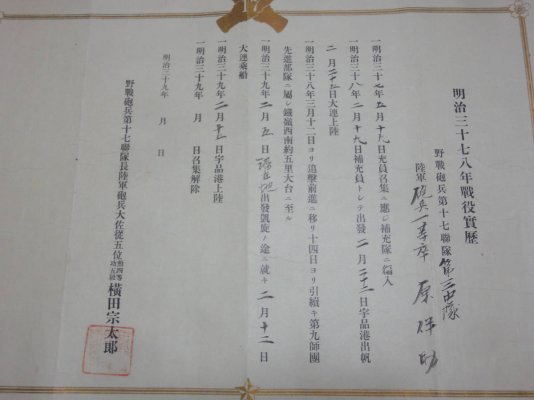 明治三十七八年戰役實歷
野戰砲兵第十七聯隊第三中隊
陸軍砲兵一等卒 原 助
一明治三十七年五月十九日充員召集ニ應シ補充隊ニ編入
一明治三十八年二月十九日補充員トシテ出發二月二十二日宇品港出帆
二月二十五日大連上陸
一明治三十八年三月十二日ヨリ追擊前進ニ移リ十四日ヨリ引續キ第九師團
先進部隊ニ屬シ鐵嶺西南約五里大台ニ至ル
一明治三十九年二月五日 地出發凱旋ノ途ニ就キ二月十二日
大連乘船
一明治三十九年二月 日宇品港上陸
一明治三十九年 月 日召集解除
明治三十九年 月 日
野戰砲兵第十七聯隊長陸軍砲兵大佐從五位勳四等功五級橫田宗太郎
17